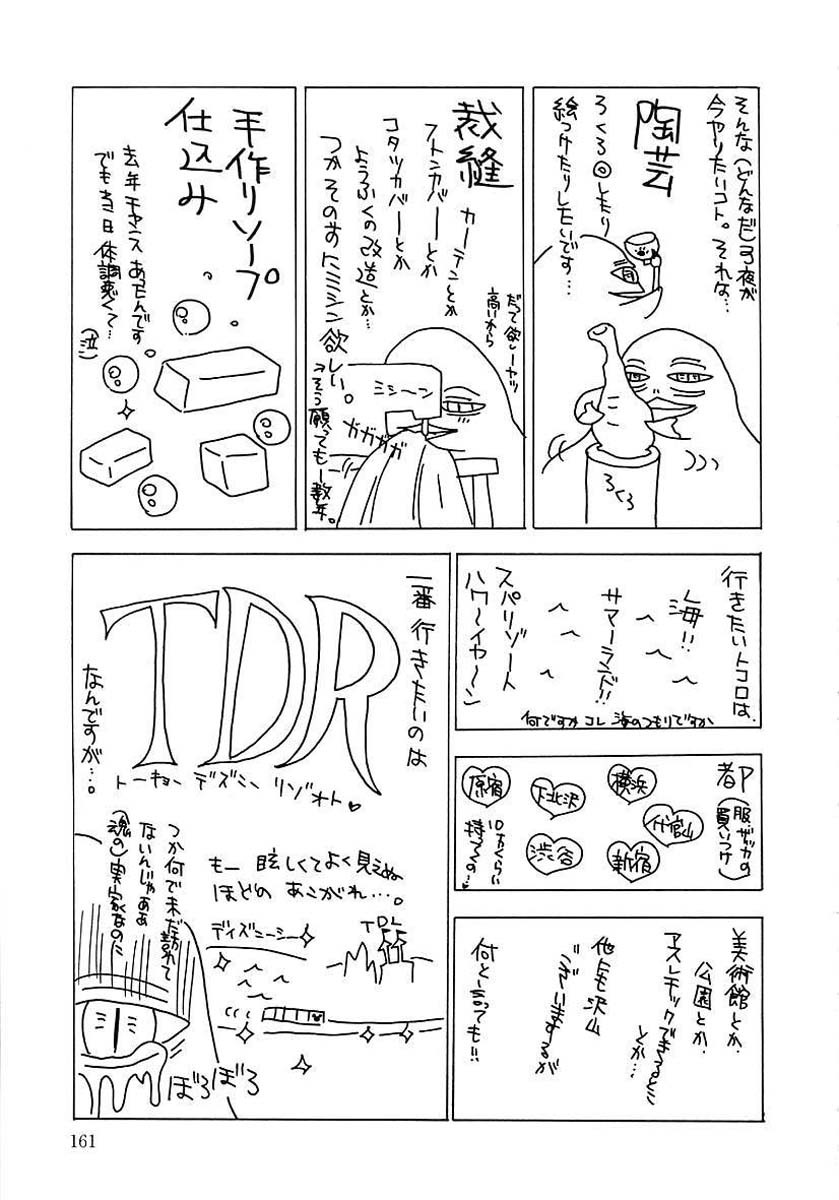 そんな(どんなだ)3夜が
今やりたいコト。それな…
陶芸
ろくろ◎しもり
絵つけたりしたいです…
ろくろ
裁縫
カーテンとか
フトンカバーとか
コタツカバーとか
ようふくの改造とか…
つかそのまえにミシン欲しい。
→そう願っても一数年。
だって欲しーヤツ
高いから
ミシーン
ガガガガ
手作りソープ
仕込み
去年チャンスあったんです
でも当日体調悪くて…
(泣)
行きたいトコロは、
海!!
サマーランド!!
スパリゾート
ハワ〜イヤ〜ン
何ですかコレ 海のつもりですか
都内
(服、ザッカの
買いつけ)
原宿
下北沢
横浜
代官山
渋谷
新宿
10万くらい
持ってくの…
美術館とか、
公園とか、
アスレチックできるとこ
とか…
他にも沢山
ございまするが
何と言っても!!
一番行きたいのは
TDR
トーキョー デズミー リゾオト♥
なんですが…。
もー眩しくてよく見えぬ
ほどのあこがれ…。
ディズニーシー
TDL
つか何で未だ訪れて
ないんじゃああ
(魂の)実家なのに
ぼろぼろ
161